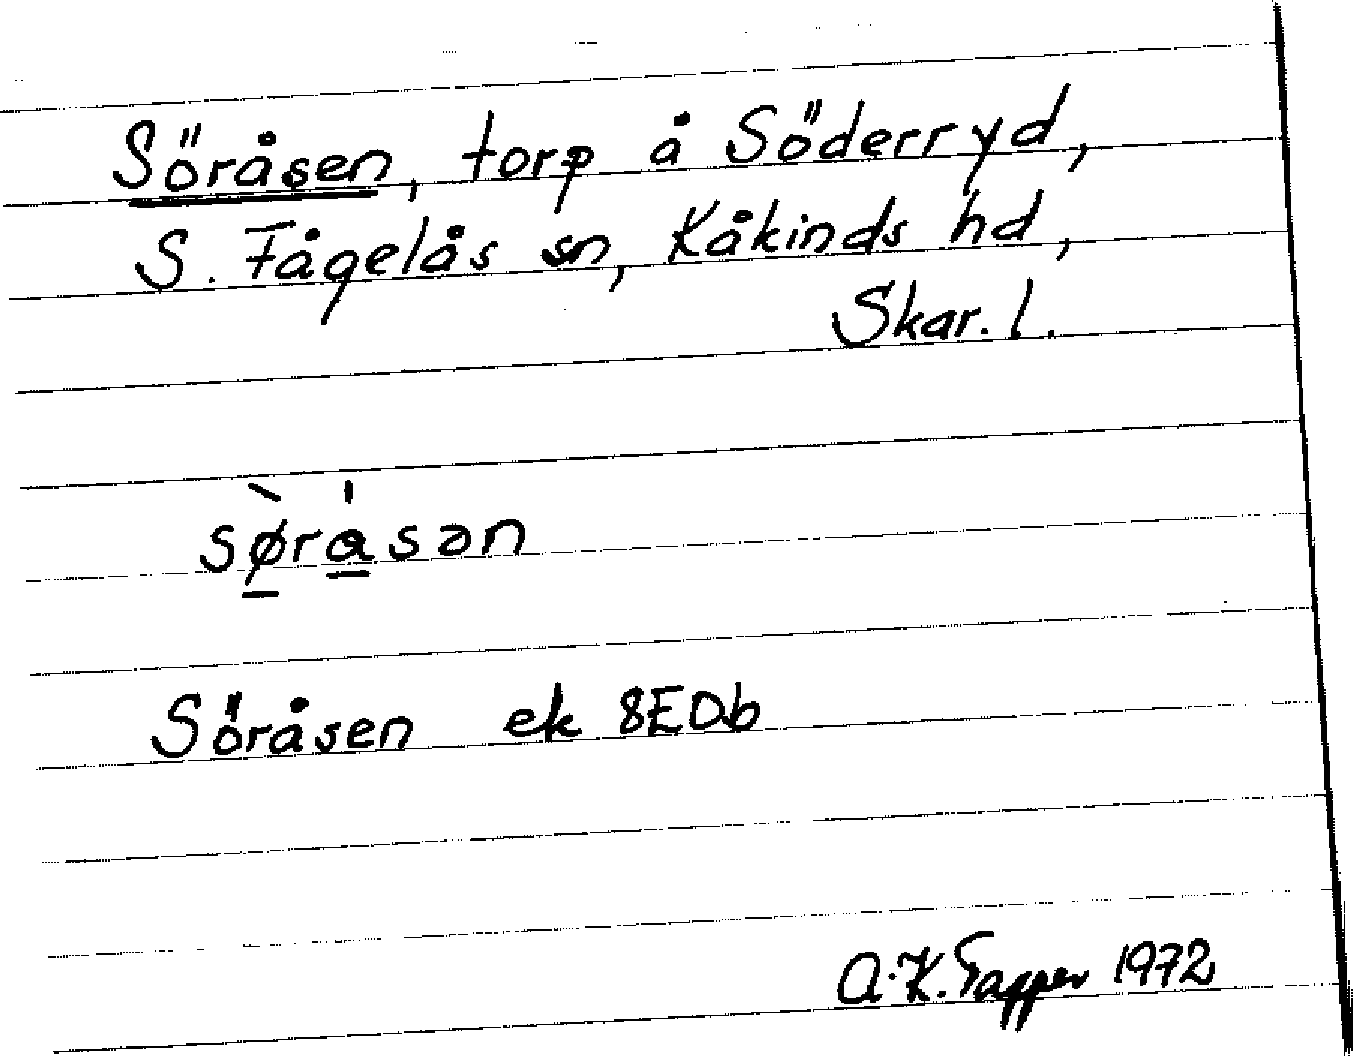 Söråsen, torp å Söderryd,
S. Fågelås sn, Kåkinds hd,
Skar. l.
sø̱̀ra̱̍sən
Söråsen ek 8EDb
A.K. Tapper 1972